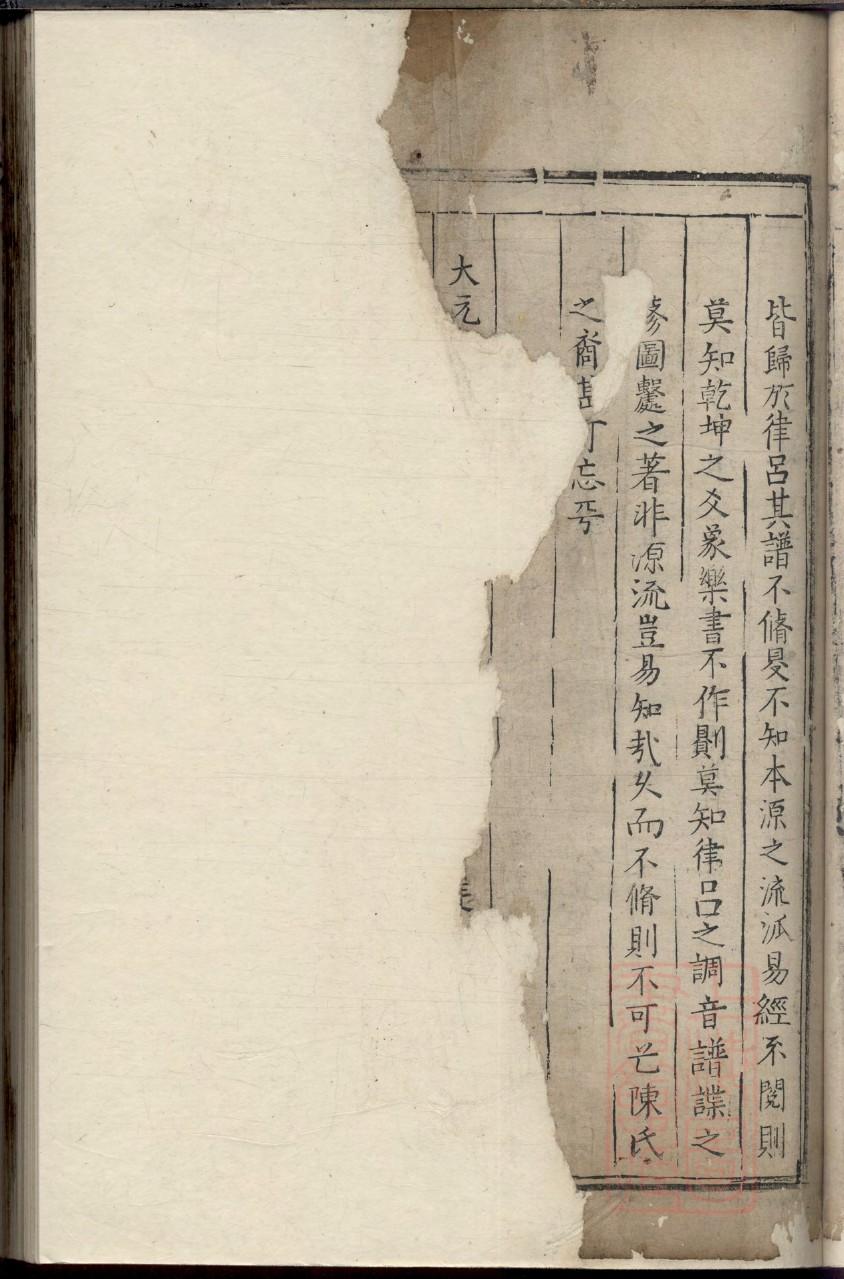 皆歸於律呂其譜不脩是不知本源之流派易經不閱則
莫知乾坤之爻象樂書不作則莫知律呂之調音譜諜之
圖繫之著非源流豈易知哉久而不脩則不可已陳氏
之裔甚可忘乎
大元